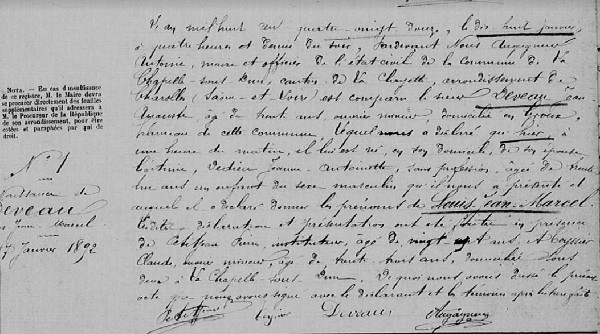 NOTA. — En cas d'insuffisance
de ce registre, M. le Maire devra
se procurer directement des feuilles
supplémentaires qu'il adressera à
M. le Procureur de la République
de son arrondissement, pour être
cotées et paraphées par qui de
droit.
N° 1
Naissance de
Deveau
Jean Marcel
17 Janvier 1892
L'an mil huit cent quatre-vingt douze, le dix huit janvier,
à quatre heures et demie du soir, pardevant Nous
Antoine, maire et officier de l'état civil de la Commune de La
Chapelle-sous-Dun, canton de La Chapelle, arrondissement de
Charolles (Saône et Loire) est comparu le sieur Deveau Jean
âgé de trente ans, ouvrier mineur, domicilié
de cette commune, lequel nous a déclaré qu'hier à
une heure du matin, il lui est né, en son domicile, de son épouse
légitime, Jeanne Antoinette, sans profession, âgée de trente
ans un enfant du sexe masculin qu'il nous a présenté et
auquel il a déclaré donner les prénoms de Louis Jean Marcel.
Lesdites déclaration et présentation ont été faites en présence
de instituteur, âgé de vingt ans, et
Claude, mineur, âgé de trente huit ans, domiciliés tous
deux à La Chapelle sous Dun. De quoi nous avons dressé le présent
acte que nous avons signé avec le déclarant et les témoins après lecture faite
Deveau